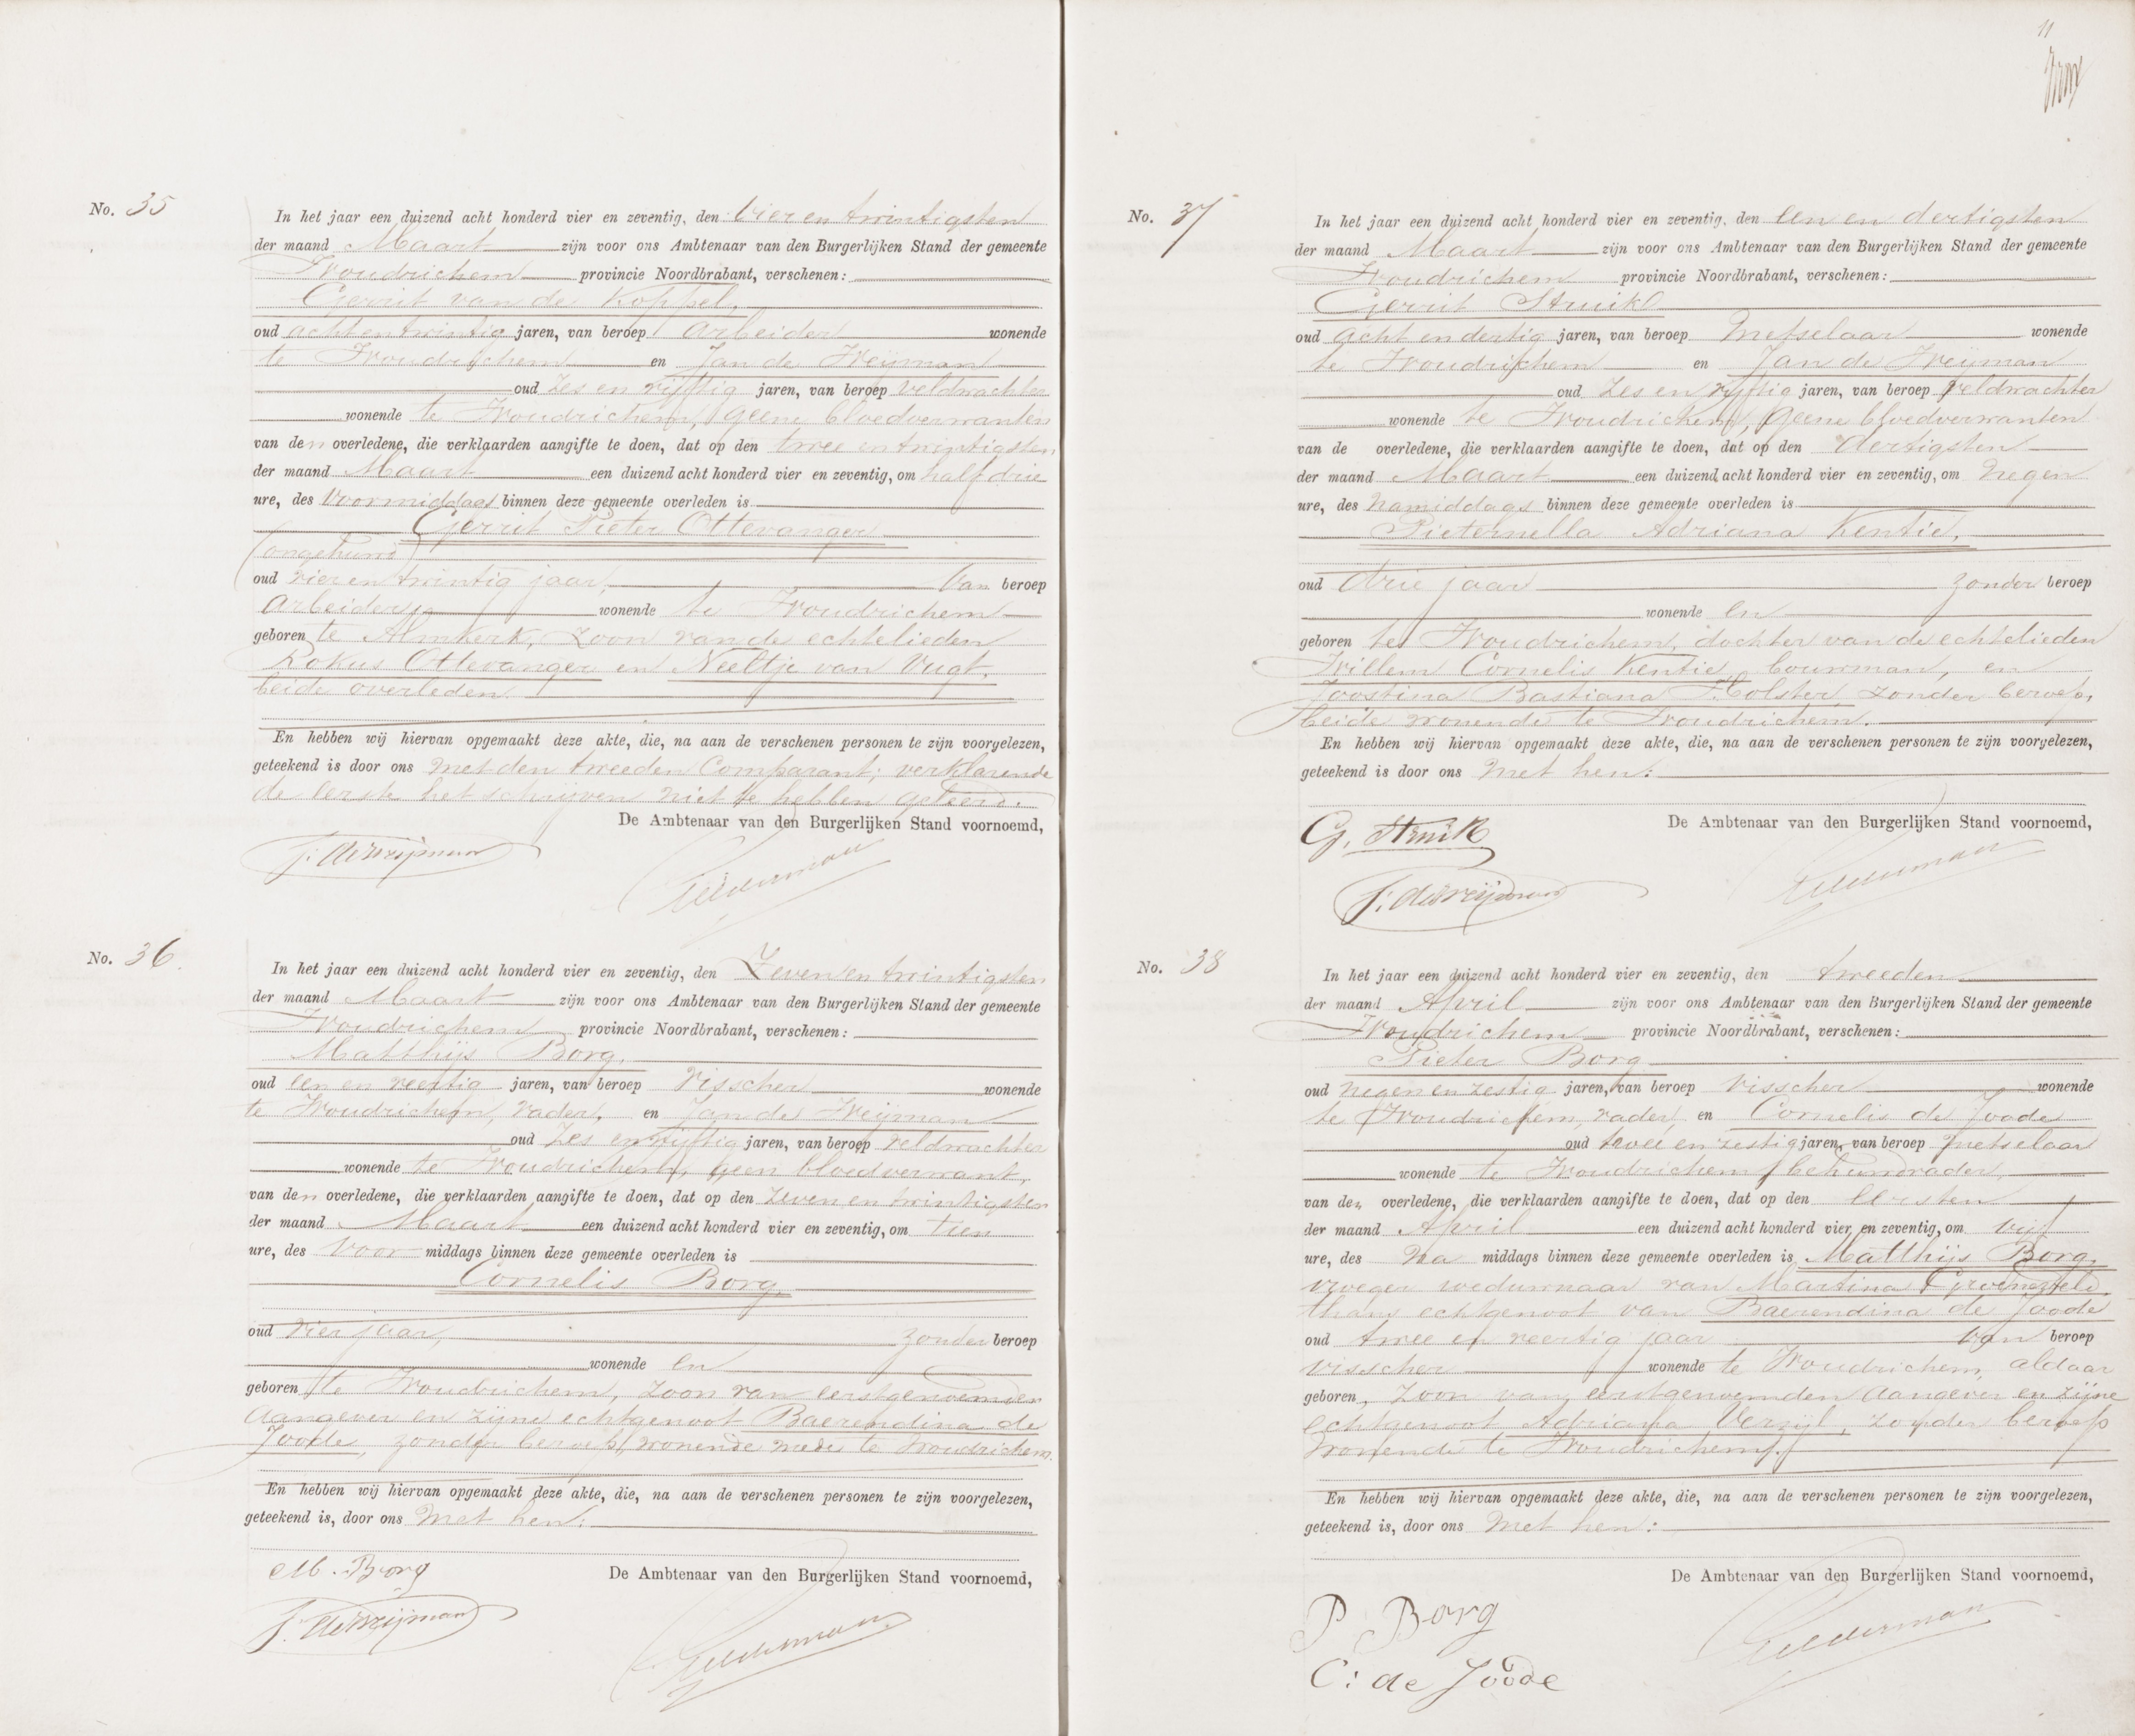 No. 35
In het jaar een duizend acht honderd vier en zeventig, den Vier en twintigsten
der maand Maart zijn voor ons Ambtenaar van den Burgerlijken Stand der gemeente
Woudrichem provincie Noordbrabant, verschenen:
Gerrit van de Koppel,
oud achtentwintig jaren, van beroep Arbeider wonende
te Woudrichem en Jan de Weijman
oud Zes en vijftig jaren, van beroep veldwachter
wonende te Woudrichem, geene bloedverwanten
van den overledene, die verklaarden aangifte te doen, dat op den twee en twintigsten
der maand Maart een duizend acht honderd vier en zeventig, om half drie
ure, des Voormiddags binnen deze gemeente overleden is
Gerrit Pieter Ottevanger
(ongehuwd)
oud vier en twintig jaar, Van beroep
Arbeider, wonende te Woudrichem
geboren te Almkerk, Zoon van de echtelieden
Rokus Ottevanger en Neeltje van Vugt,
beide overleden.
En hebben wij hiervan opgemaakt deze akte, die, na aan de verschenen personen te zijn voorgelezen,
geteekend is door ons met den tweeden Comparant; verklarende
de eerste het schrijven niet te hebben geleerd.
De Ambtenaar van den Burgerlijken Stand voornoemd,
J: de Weijman
Gelderman
No. 36.
In het jaar een duizend acht honderd vier en zeventig, den Zeven en twintigsten
der maand Maart zijn voor ons Ambtenaar van den Burgerlijken Stand der gemeente
Woudrichem provincie Noordbrabant, verschenen:
Matthijs Borg,
oud een en veertig jaren, van beroep Visscher wonende
te Woudrichem, vader, en Jan de Weijman
oud Zes en vijftig jaren, van beroep veldwachter
wonende te Woudrichem, geen bloedverwant,
van den overledene, die verklaarden aangifte te doen, dat op den Zeven en twintigsten
der maand Maart een duizend acht honderd vier en zeventig, om tien
ure, des Voor middags binnen deze gemeente overleden is
Cornelis Borg,
oud vier jaar, zonder beroep
wonende en
geboren te Woudrichem, Zoon van eerstgenoemden
Aangever en zijne echtgenoot Baerendina de
Joode, zonder beroep, wonende mede te Woudrichem.
En hebben wij hiervan opgemaakt deze akte, die, na aan de verschenen personen te zijn voorgelezen,
geteekend is, door ons met hen:
De Ambtenaar van den Burgerlijken Stand voornoemd,
M. Borg
J: de Weijman
Gelderman
11
No. 37
In het jaar een duizend acht honderd vier en zeventig, den een en dertigsten
der maand Maart zijn voor ons Ambtenaar van den Burgerlijken Stand der gemeente
Woudrichem provincie Noordbrabant, verschenen:
Gerrit Struik
oud Acht en dertig jaren, van beroep Metselaar wonende
te Woudrichem en Jan de Weijman
oud Zes en vijftig jaren, van beroep veldwachter
wonende te Woudrichem, geene bloedverwanten
van de overledene, die verklaarden aangifte te doen, dat op den dertigsten
der maand Maart een duizend acht honderd vier en zeventig, om Negen
ure, des Namiddags binnen deze gemeente overleden is
Pieternella Adriana Kentie,
oud drie jaar zonder beroep
wonende en
geboren te Woudrichem, dochter van de echtelieden
Willem Cornelis Kentie, bouwman, en
Joostina Bastiana Holster, zonder beroep,
beide wonende te Woudrichem.
En hebben wij hiervan opgemaakt deze akte, die, na aan de verschenen personen te zijn voorgelezen,
geteekend is door ons met hen:
De Ambtenaar van den Burgerlijken Stand voornoemd,
G. Struik
J: de Weijman
Gelderman
No. 38
In het jaar een duizend acht honderd vier en zeventig, den tweeden
der maand April zijn voor ons Ambtenaar van den Burgerlijken Stand der gemeente
Woudrichem provincie Noordbrabant, verschenen:
Pieter Borg
oud negen en zestig jaren, van beroep Visscher wonende
te Woudrichem, vader, en Cornelis de Joode
oud twee en zestig jaren, van beroep metselaar
wonende te Woudrichem, behuwdvader,
van den overledene, die verklaarden aangifte te doen, dat op den eersten
der maand April een duizend acht honderd vier en zeventig, om vijf
ure, des Na middags binnen deze gemeente overleden is Matthijs Borg,
vroeger weduwnaar van Martina Groeneveld,
thans echtgenoot van Baerendina de Joode
oud twee en veertig jaar Van beroep
visscher wonende te Woudrichem, aldaar
geboren, Zoon van eerstgenoemden Aangever en zijne
echtgenoot Adriana Verzijl, zonder beroep
wonende te Woudrichem.
En hebben wij hiervan opgemaakt deze akte, die, na aan de verschenen personen te zijn voorgelezen,
geteekend is, door ons met hen:
De Ambtenaar van den Burgerlijken Stand voornoemd,
P. Borg
C: de Joode
Gelderman